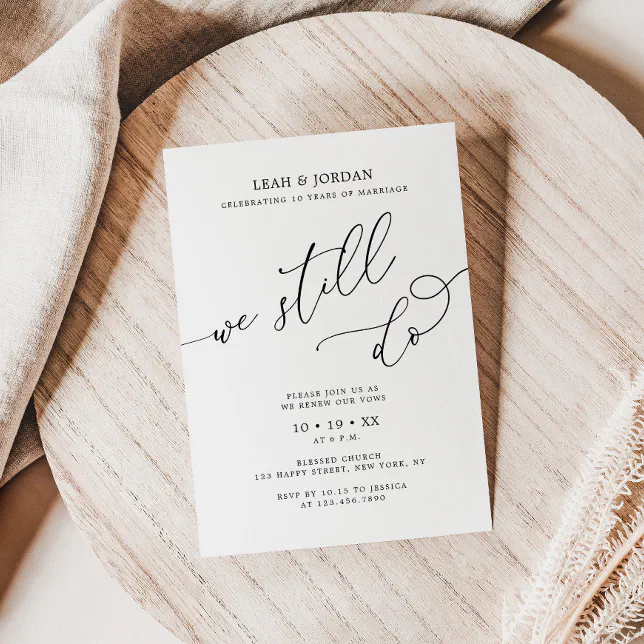 LEAH & JORDAN
CELEBRATING 10 YEARS OF MARRIAGE
we still
do
PLEASE JOIN US AS
WE RENEW OUR VOWS
10 • 19 • XX
AT 6 P.M.
BLESSED CHURCH
123 HAPPY STREET, NEW YORK, NY
RSVP BY 10.15 TO JESSICA
AT 123.456.7890